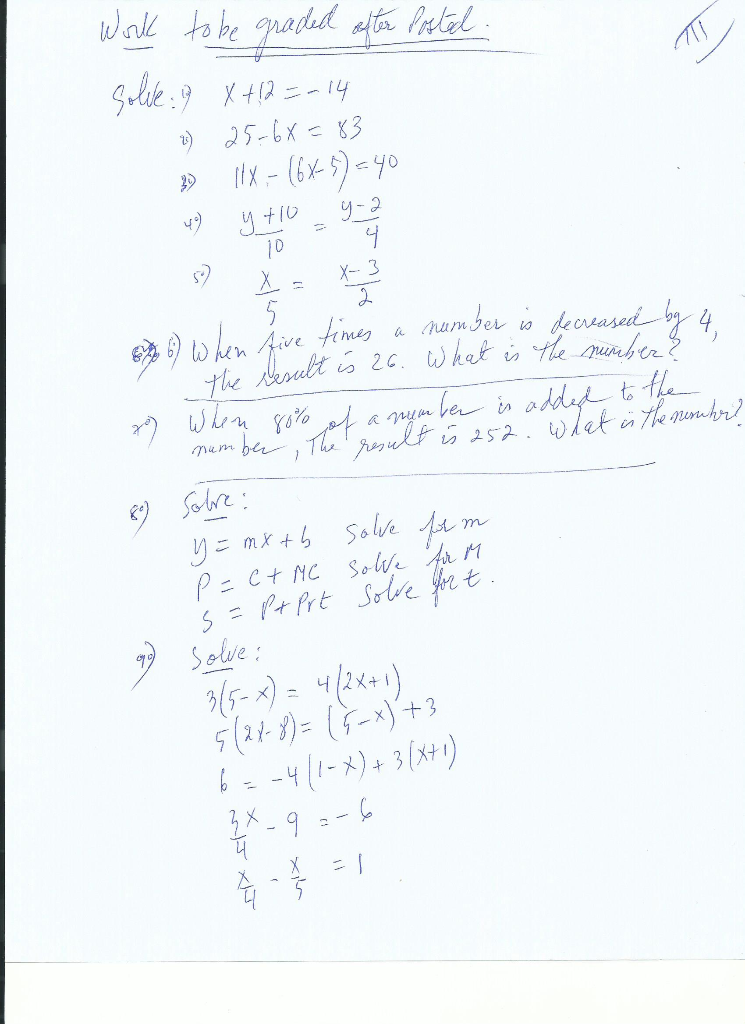 Work to be graded after Posted.
III
Solve: 1) x+12 = -14
2) 25-6x = 83
3) 11x - (6x-5) = 40
4) y+10/10 = y-2/4
5) x/5 = x-3/2
6) When five times a number is decreased by 4,
the result is 26. What is the number?
7) When 80% of a number is added to the
number, The result is 252. What is the number?
8) Solve:
y = mx + b Solve for m
P = C + MC Solve for M
S = P + Prt Solve for t.
9) Solve:
3(5-x) = 4(2x+1)
5(2x-8) = (5-x) + 3
6 = -4(1-x) + 3(x+1)
3x/4 - 9 = -6
x/4 - x/5 = 1